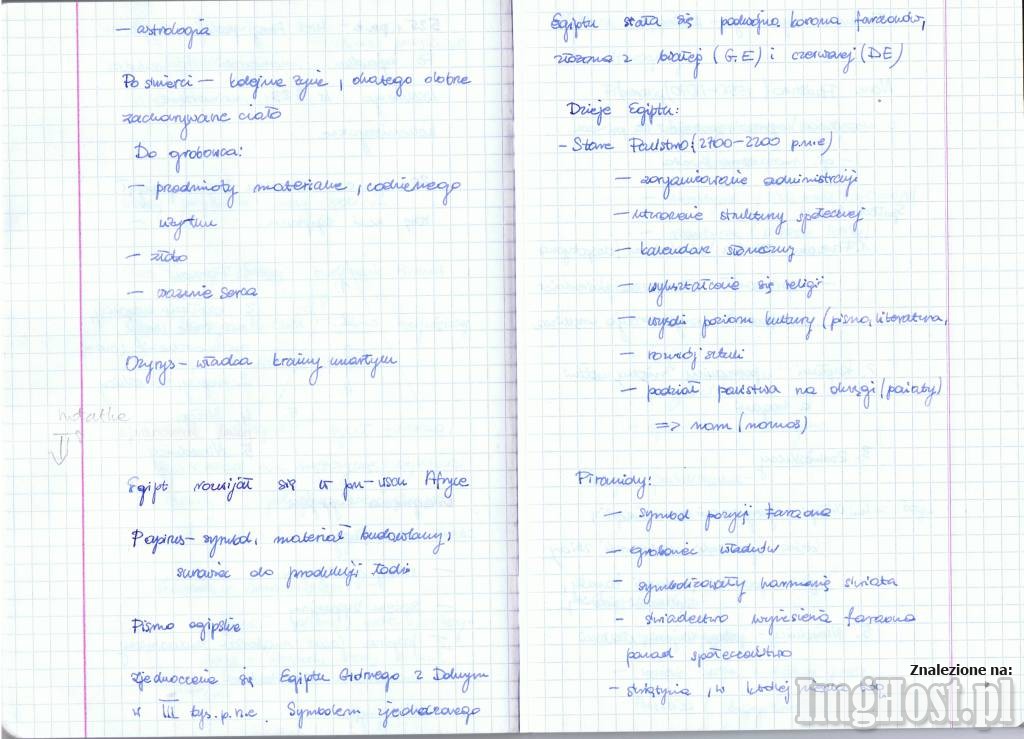 - astrologia
Po śmierci - kolejne życie, dlatego dobrze
zachowywane ciało
Do grobowca:
- przedmioty materialne, codziennego
użytku
- złoto
- ważenie serca
Ozyrys - władca krainy umarłych
notatka
Egipt rozwijał się w pn-wsch Afryce
Papirus - symbol, materiał budowlany,
surowiec do produkcji łodzi
Pismo egipskie
Zjednoczenie się Egiptu Górnego z Dolnym
w III tys. p.n.e. Symbolem zjednoczonego
Egiptu stała się podwójna korona faraonów,
złożona z białej (G.E) i czerwonej (DE)
Dzieje Egiptu:
- Stare Państwo: (2700-2200 p.n.e)
- zorganizowanie administracji
- utworzenie struktury społecznej
- kalendarz słoneczny
- wykształcenie się religii
- wysoki poziom kultury (pismo, literatura,
- rozwój sztuki
- podział państwa na okręgi (powiaty)
=> nom (nomos)
Piramidy:
- symbol pozycji faraona
- grobowiec władców
- symbolizowały harmonię świata
- świadectwo wyniesienia faraona
ponad społeczeństwo
- świątynia, w której
Znalezione na:
ImgHost.pl